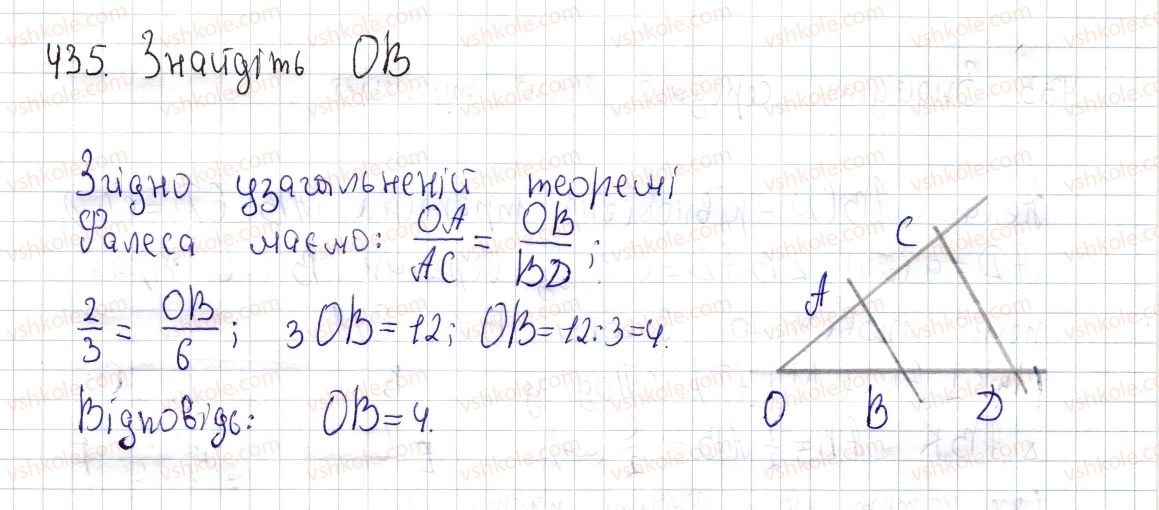 435. Знайдіть OB
Згідно узагальненій теоремі
Фалеса маємо: OA/AC = OB/BD;
2/3 = OB/6; 3 OB = 12; OB = 12:3 = 4.
Відповідь: OB = 4.
C
A
O B D